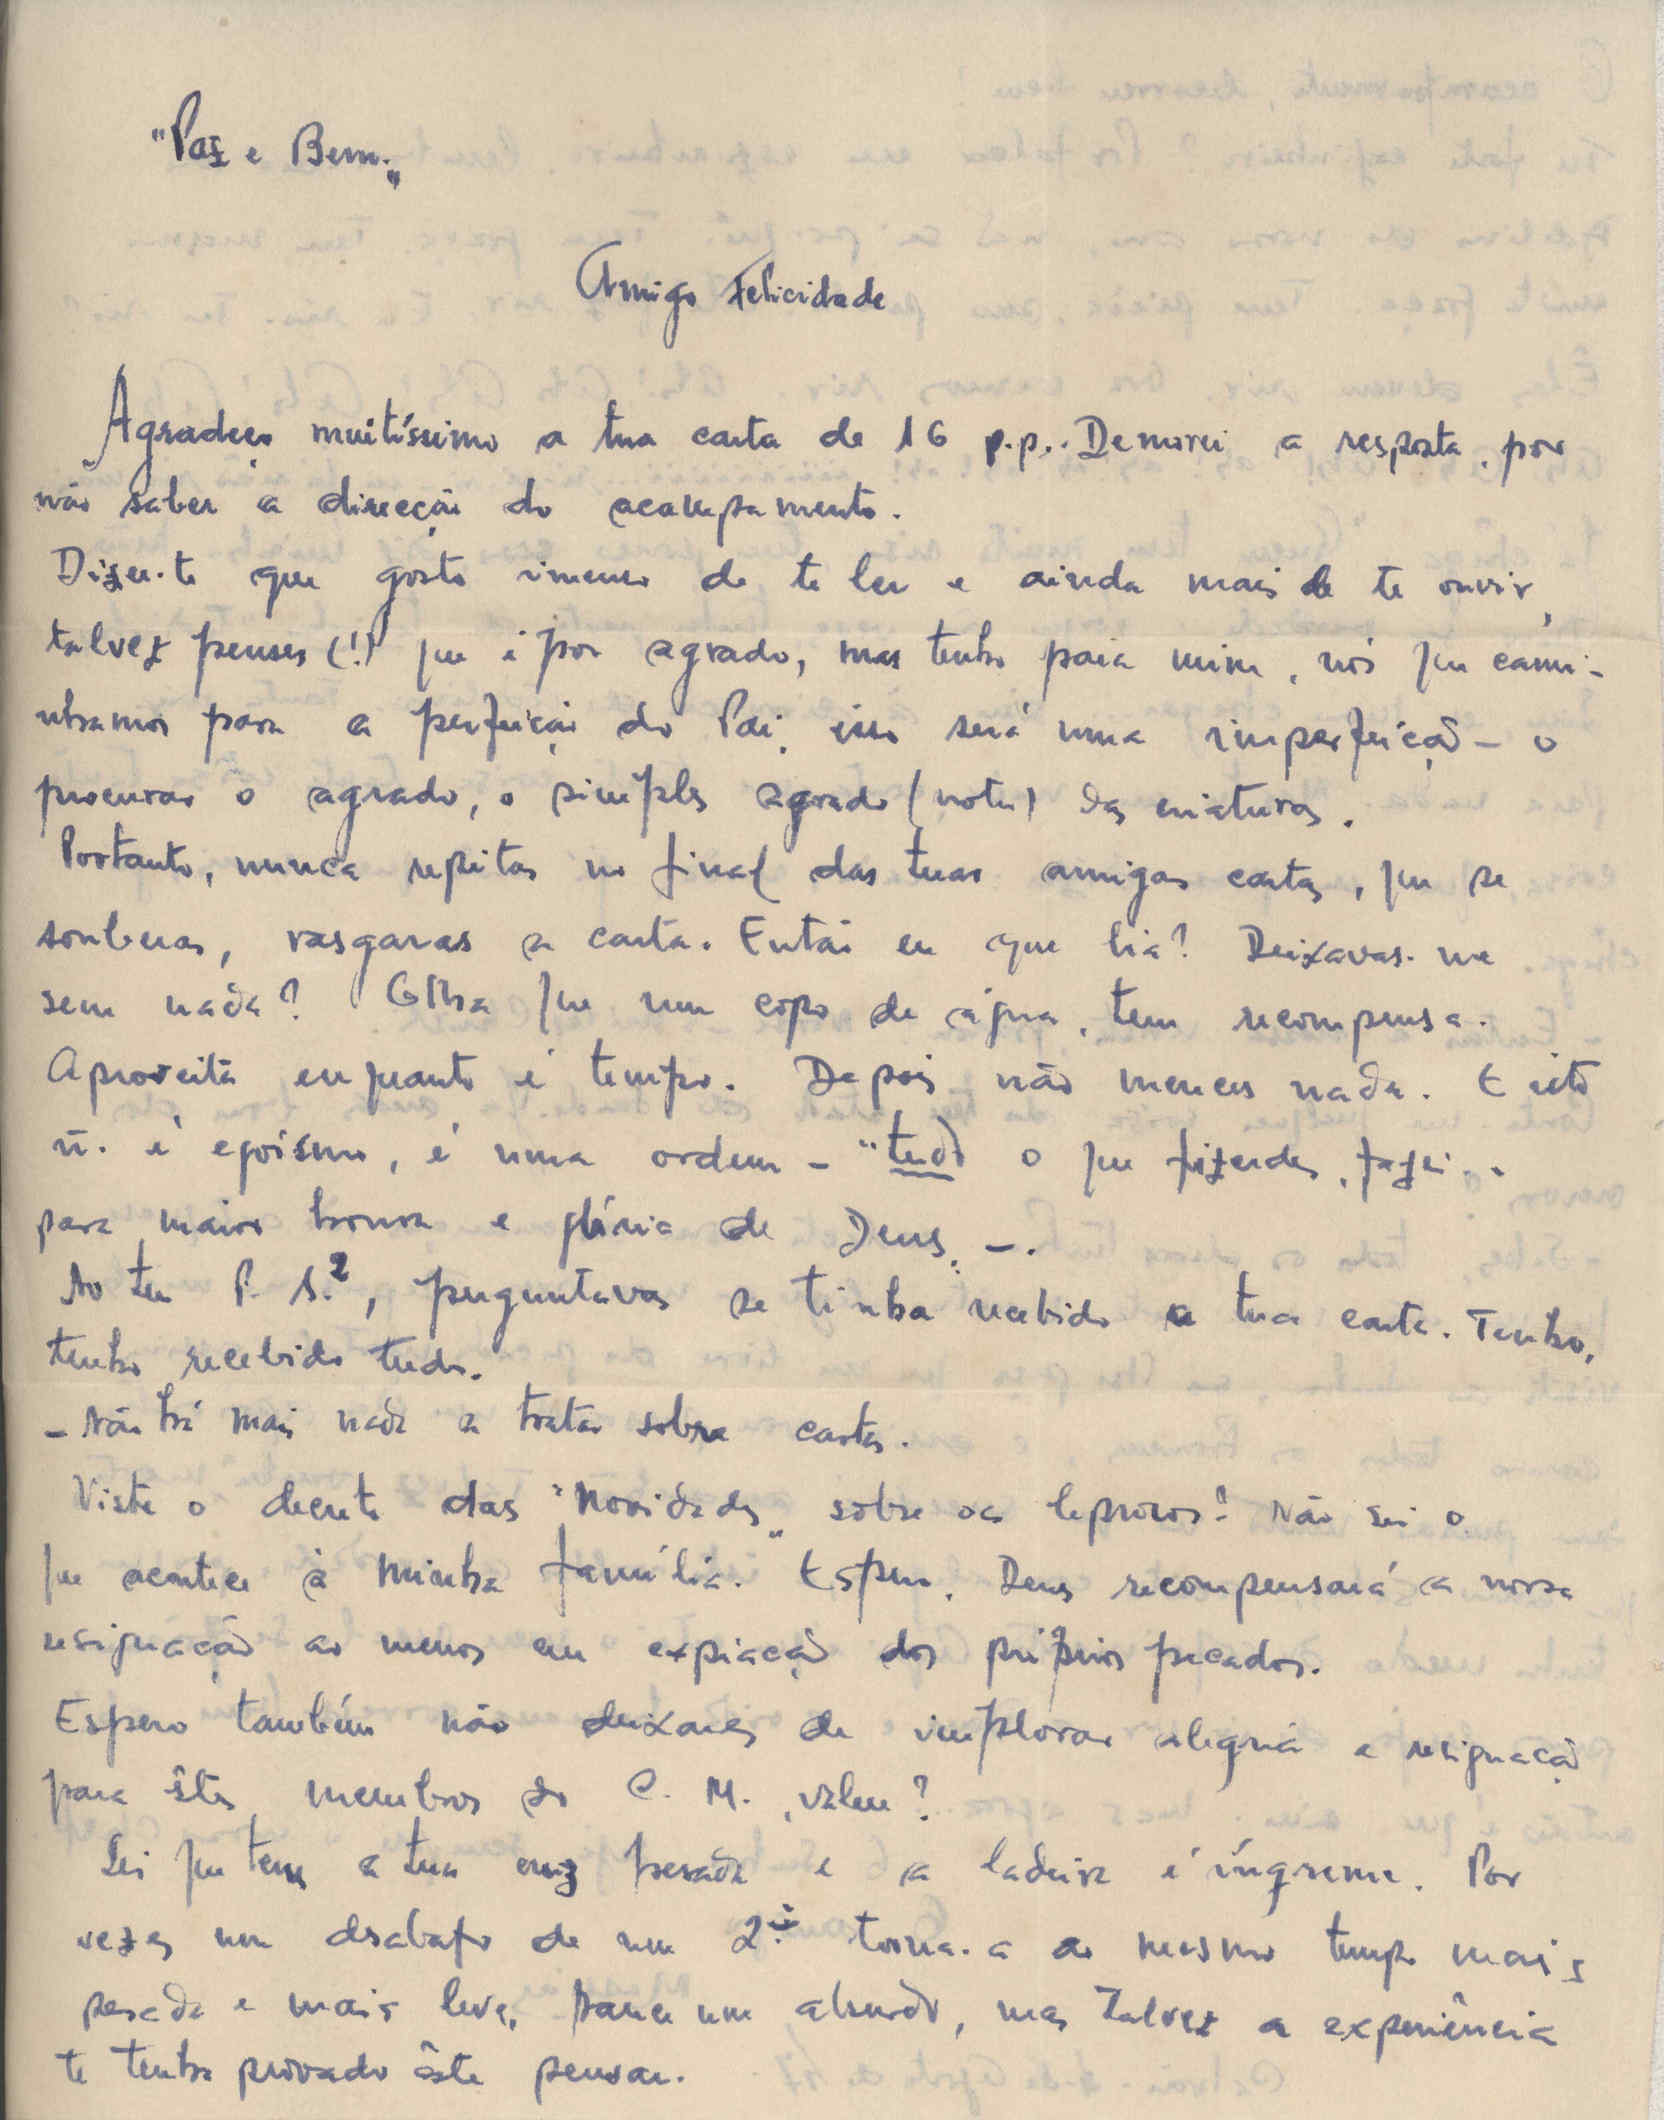 "Paz e Bem."
Amigo Felicidade
Agradeço muitíssimo a tua carta de 16 p.p.. Demorei a resposta, por
não saber a direcção do acampamento.
Dizer-te que gosto imenso de te ler e ainda mais de te ouvir,
talvez penses (!) que é por agrado, mas tenho para mim, nós que cami-
nhamos para a perfeição do Pai, isso será uma imperfeição - o
procurar o agrado, o simples agrado (nota) das criaturas.
Portanto, nunca repitas no final das tuas amigas cartas, que se
souberas, rasgavas a carta. Então eu que lia? Deixavas-me
sem nada? Olha que um copo de água, tem recompensa.
Aproveita enquanto é tempo. Depois não mereces nada. E isto
ñ. é egoísmo, é uma ordem - "tudo o que fizerdes, fazei-o
para maior honra e glória de Deus" -.
No teu P. S.², perguntavas se tinha recebido a tua carta. Tenho,
tenho recebido tudo.
- Não há mais nada a tratar sobre cartas.
Viste o decreto das "Novidades" sobre os leprosos? Não sei o
que acontece à minha família. Espero. Deus recompensará a nossa
resignação ao menos em expiação dos próprios pecados.
Espero também não deixares de implorar alegria e resignação
para êstes membros do C. M., valeu?
Sei que tens a tua cruz pesada e a ladeira é íngreme. Por
vezes um desabafo de um 2.º torna-a ao mesmo tempo mais
pesada e mais leve, parece um absurdo, mas talvez a experiência
te tenha provado êste pensar.